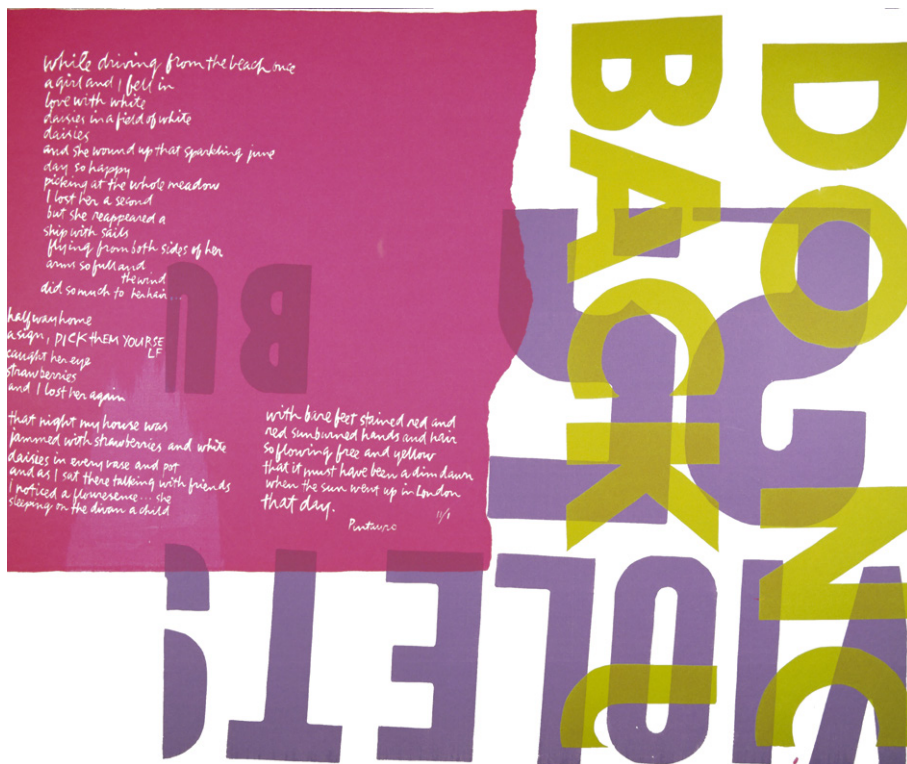 while driving from the beach once
a girl and I fell in
love with white
daisies in a field of white
daisies
and she wound up that sparkling june
day so happy
picking at the whole meadow
I lost her a second
but she reappeared a
ship with sails
flying from both sides of her
arms so full and
the wind
did so much to her hair...
halfway home
a sign, PICK THEM YOURSE
LF
caught her eye
strawberries
and I lost her again
that night my house was
jammed with strawberries and white
daisies in every vase and pot
and as I sat there talking with friends
I noticed a flouresence... she
sleeping on the divan a child
with bare feet stained red and
red sunburned hands and hair
so flowing free and yellow
that it must have been a dim dawn
when the sun went up in London
that day.
Pintauro
DO
BACK
BU
VIOLETS